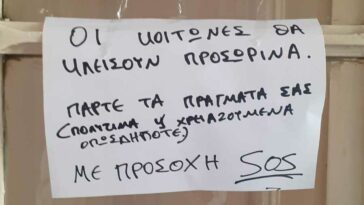 ΟΙ ΚΟΙΤΩΝΕΣ ΘΑ
ΚΛΕΙΣΟΥΝ ΠΡΟΣΩΡΙΝΑ.
ΠΑΡΤΕ ΤΑ ΠΡΑΓΜΑΤΑ ΣΑΣ
(ΠΟΛΥΤΙΜΑ Ή ΧΡΕΙΑΖΟΥΜΕΝΑ
ΟΠΩΣΔΗΠΟΤΕ)
ΜΕ ΠΡΟΣΟΧΗ SOS